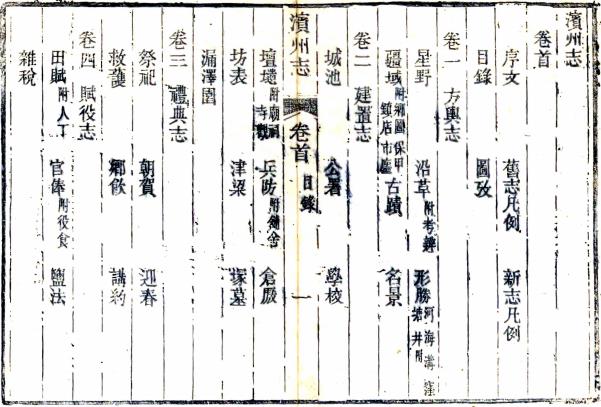 濱州志
卷首
序文 舊志凡例 新志凡例
目錄 圖攷
卷一 方輿志
星野 沿革附考辨 形勝河海溝窪塘井附
疆域附鄉圖保甲鎮店市廛 古蹟 名景
卷二 建置志
城池 公署 學校
濱州志 卷首 目錄 一
壇壝附廟祠寺觀 兵防附舖舍 倉廒
坊表 津梁 塚墓
漏澤園
卷三 禮典志
祭祀 朝賀 迎春
救護 鄉飲 講約
卷四 賦役志
田賦附人丁 官俸附役食 鹽法
雜稅